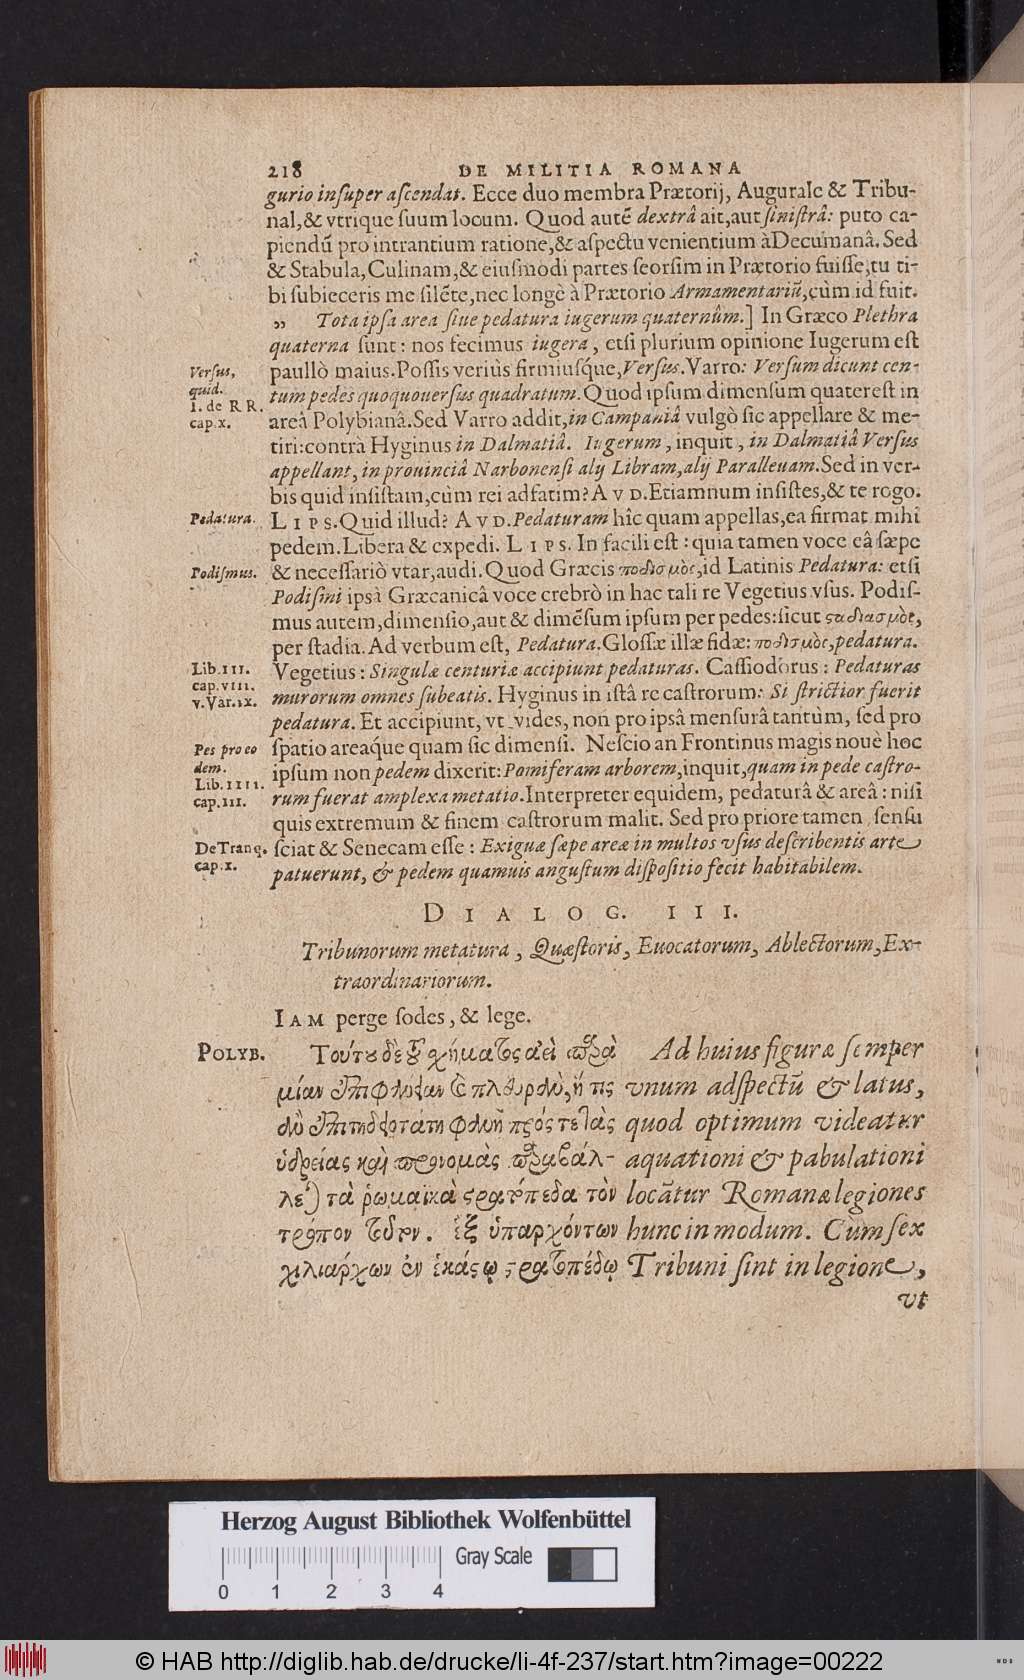 218 DE MILITIA ROMANA
gurio inſuper aſcendat. Ecce duo membra Prætorij, Augurale & Tribu-
nal, & vtrique ſuum locum. Quod autẽ dextrâ ait, aut ſiniſtrâ: puto ca-
piendũ pro intrantium ratione, & aſpectu venientium à Decumanâ. Sed
& Stabula, Culinam, & eiuſmodi partes ſeorſim in Prætorio fuiſſe, tu ti-
bi ſubieceris me ſilẽte, nec longè à Prætorio Armamentariũ, cùm id fuit.
„ Tota ipſa area ſiue pedatura iugerum quaternûm.] In Græco Plethra
quaterna ſunt: nos fecimus iugera, etſi plurium opinione Iugerum eſt
Verſus,
quid.
I. de R R.
cap. x.
paullò maius. Poſſis veriùs firmiuſq́ue, Verſus. Varro: Verſum dicunt cen-
tum pedes quoquouerſus quadratum. Quod ipſum dimenſum quater eſt in
areâ Polybianâ. Sed Varro addit, in Campaniâ vulgò ſic appellare & me-
tiri: contrà Hyginus in Dalmatiâ. Iugerum, inquit, in Dalmatiâ Verſus
appellant, in prouinciâ Narbonenſi alij Libram, alij Paralleuam. Sed in ver-
bis quid inſiſtam, cùm rei adfatim? A V D. Etiamnum inſiſtes, & te rogo.
Pedatura.
L I P S. Quid illud? A V D. Pedaturam hîc quam appellas, ea firmat mihi
pedem. Libera & expedi. L I P S. In facili eſt: quia tamen voce eâ ſæpe
Podiſmus.
& neceſſariò vtar, audi. Quod Græcis ποδισμὸς, id Latinis Pedatura: etſi
Podiſmi ipſâ Græcanicâ voce crebrò in hac tali re Vegetius vſus. Podiſ-
mus autem, dimenſio, aut & dimẽſum ipſum per pedes: ſicut ϛαδιασμὸς,
per ſtadia. Ad verbum eſt, Pedatura. Gloſſæ illæ fidæ: ποδισμὸς, pedatura.
Lib. III.
cap. VIII.
v. Var. IX.
Vegetius: Singulæ centuriæ accipiunt pedaturas. Caſſiodorus: Pedaturas
murorum omnes ſubeatis. Hyginus in iſtâ re caſtrorum: Si ſtrictior fuerit
pedatura. Et accipiunt, vt vides, non pro ipſâ menſurâ tantùm, ſed pro
Pes pro eo
dem.
Lib. IIII.
cap. III.
ſpatio areaq́ue quam ſic dimenſi. Neſcio an Frontinus magis nouè hoc
ipſum non pedem dixerit: Pomiferam arborem, inquit, quam in pede caſtro-
rum fuerat amplexa metatio. Interpreter equidem, pedaturâ & areâ: niſi
quis extremum & finem caſtrorum malit. Sed pro priore tamen ſenſu
De Tranq.
cap. x.
ſciat & Senecam eſſe: Exiguæ ſæpe areæ in multos vſus deſcribentis arte
patuerunt, & pedem quamuis anguſtum diſpoſitio fecit habitabilem.
D I A L O G. I I I.
Tribunorum metatura, Quæſtoris, Euocatorum, Ablectorum, Ex-
traordinariorum.
I A M perge ſodes, & lege.
POLYB.
Τούτου δὲ τοῦ χήματος ἀεὶ παρὰ
μίαν ἐπιφάνειαν καὶ πλευρὰν, ἥτις
ἂν ἐπιτηδειοτάτη φανῇ πρός τε τὰς
ὑδρείας καὶ προνομὰς, παραβάλ-
λεται τὰ ῥωμαϊκὰ ϛρατόπεδα τὸν
τρόπον τοῦτον. ἓξ ὑπαρχόντων
χιλιάρχων ἐν ἑκάϛῳ ϛρατοπέδῳ
Ad huius figuræ ſemper
vnum adſpectũ & latus,
quod optimum videatur
aquationi & pabulationi
locãtur Romanæ legiones
hunc in modum. Cùm ſex
Tribuni ſint in legione,
vt
Herzog August Bibliothek Wolfenbüttel
Gray Scale
0 1 2 3 4
© HAB http://diglib.hab.de/drucke/li-4f-237/start.htm?image=00222